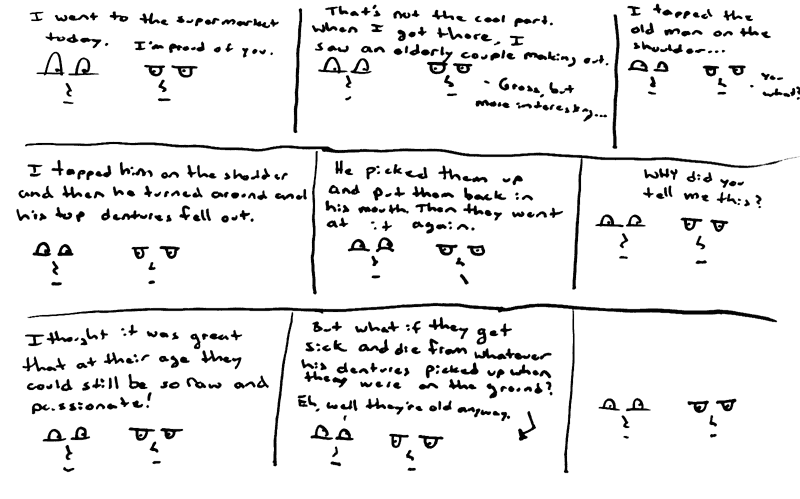 I went to the supermarket
today.
I'm proud of you.
That's not the cool part.
When I got there, I
saw an elderly couple making out.
- Gross, but
more interesting...
I tapped the
old man on the
shoulder...
You
what?
I tapped him on the sholder
and then he turned around and
his top dentures fell out.
He picked them up
and put them back in
his mouth. Then they went
at it again.
Why did you
tell me this?
I thought it was great
that at their age they
could still be so raw and
passionate!
But what if they get
sick and die from whatever
his dentures picked up when
they were on the ground?
Eh, well they're old anyway.